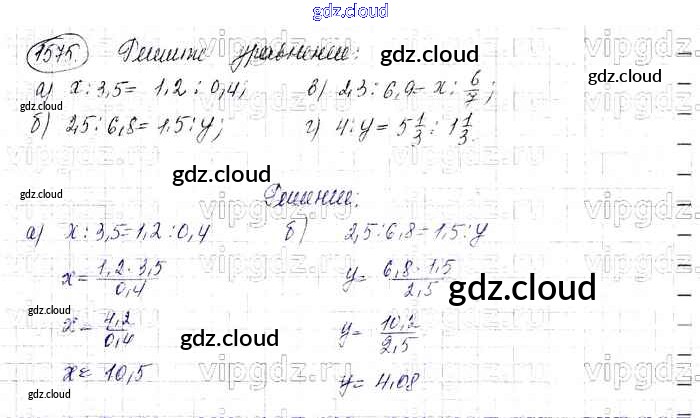 gdz.cloud
1575. Решите уравнение:
а) x : 3,5 = 1,2 : 0,4; в) 2,3 : 6,9 = x : 6/7;
б) 2,5 : 6,8 = 1,5 : y; г) 4 : y = 5 1/3 : 1 1/3.
Решение:
а) x : 3,5 = 1,2 : 0,4 б) 2,5 : 6,8 = 1,5 : y
x = 1,2 · 3,5 / 0,4 y = 6,8 · 1,5 / 2,5
x = 4,2 / 0,4 y = 10,2 / 2,5
x = 10,5 y = 4,08
gdz.cloud
gdz.cloud
gdz.cloud
gdz.cloud
gdz.cloud
gdz.cloud
gdz.cloud
gdz.cloud
gdz.cloud
gdz.cloud
gdz.cloud
vipgdz.ru
vipgdz.ru
vipgdz.ru
vipgdz.ru